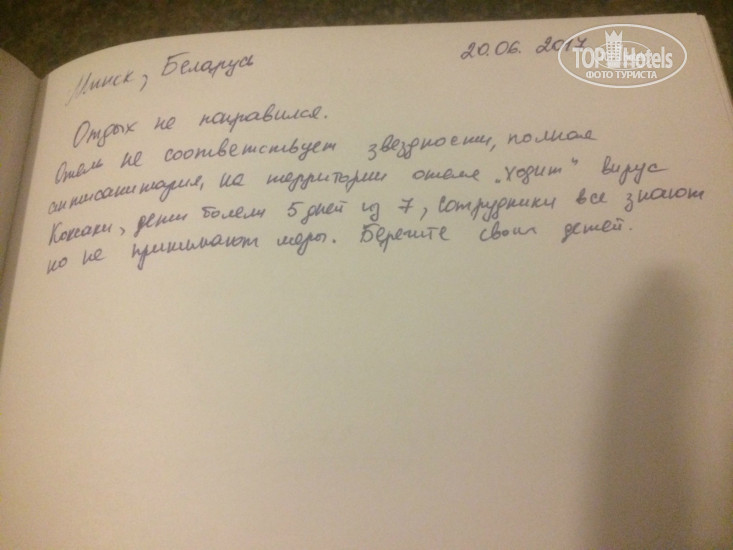 Минск, Беларусь
20.06.2017
TOP Hotels
ФОТО ТУРИСТА
Отдых не понравился.
Отель не соответствует звездности, полная
антисанитария, на территории отеля „ходит“ вирус
Коксаки, дети болели 5 дней из 7, сотрудники все знают
но не принимают меры. Берегите своих детей.